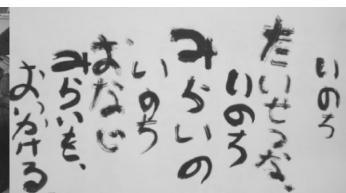 いのち
たいせつな、
いのち
みらいの
いのち
おなじ
みらいも、
おっかける